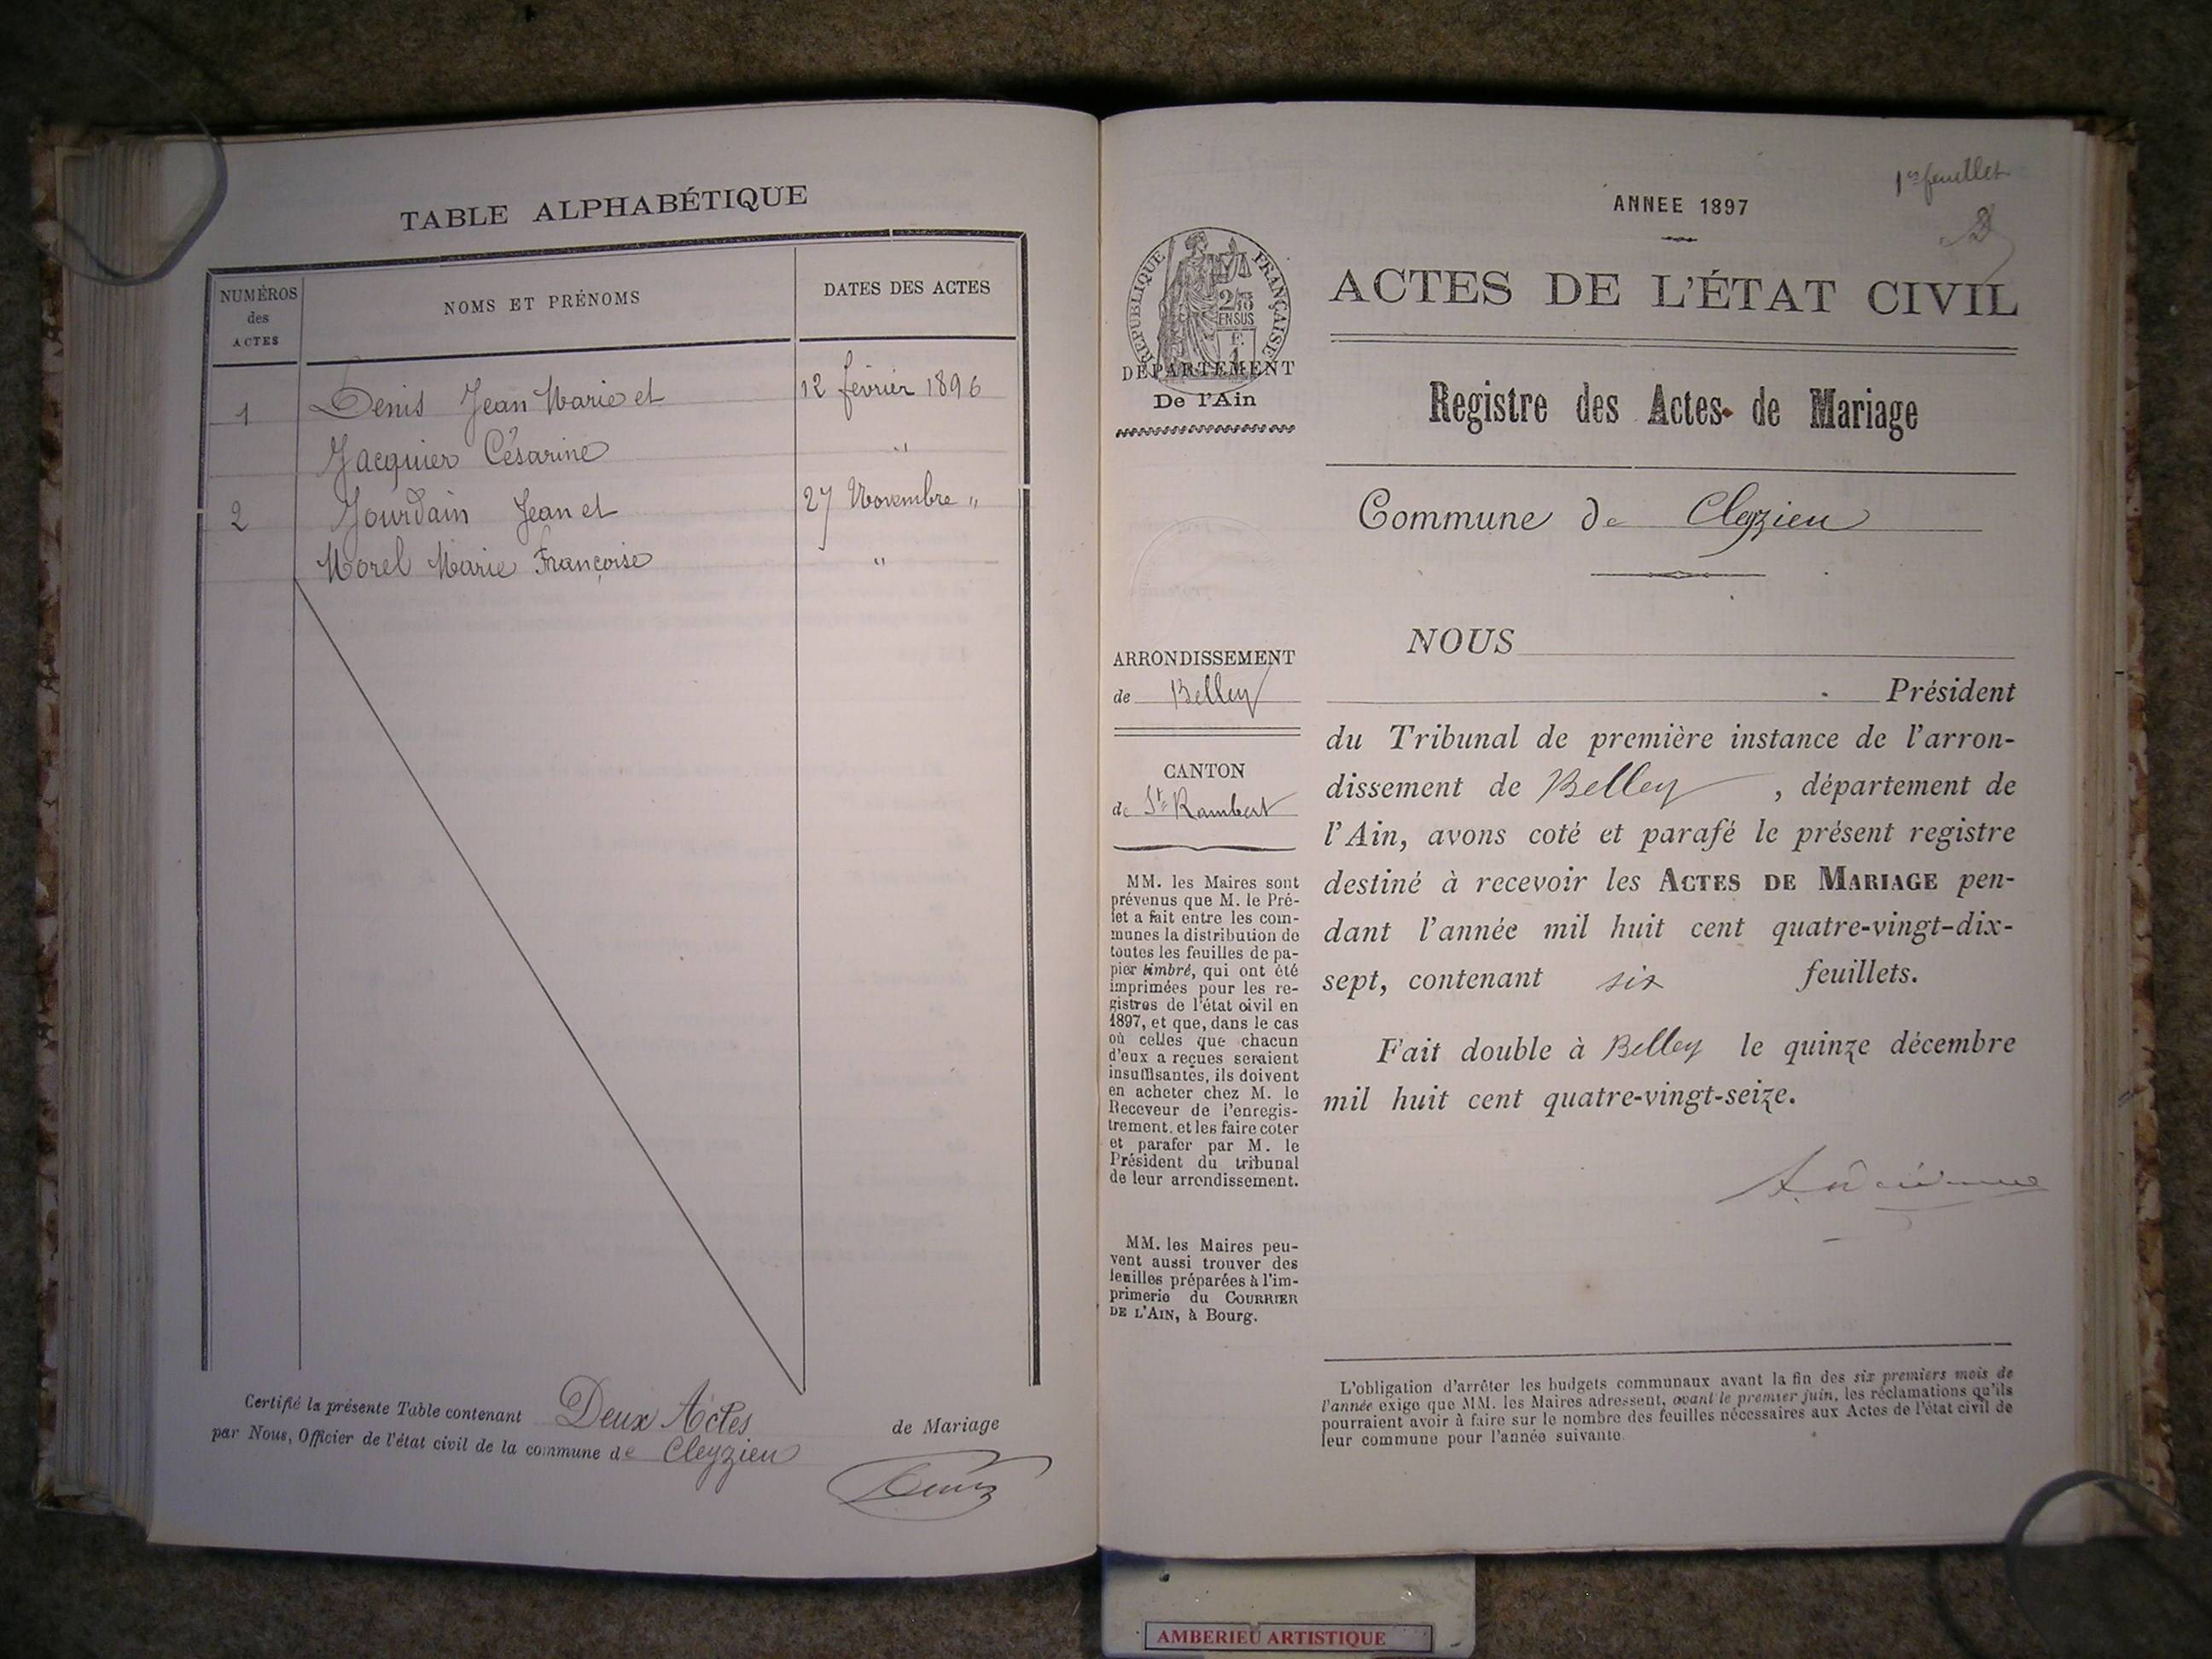 TABLE ALPHABÉTIQUE
NUMÉROS des ACTES
NOMS ET PRÉNOMS
DATES DES ACTES
1 Denis Jean Marie et 12 février 1896
Jacquier Césarine "
2 Jourdain Jean et 27 Novembre "
Morel Marie Françoise "
Certifié la présente Table contenant Deux Actes de Mariage
par Nous, Officier de l'état civil de la commune de Cleyzieu
1er feuillet
ANNEE 1897
RÉPUBLIQUE FRANÇAISE
2/10
EN SUS
1 F.
DÉPARTEMENT
De l'Ain
ACTES DE L'ÉTAT CIVIL
Registre des Actes de Mariage
Commune de Cleyzieu
ARRONDISSEMENT
de Belley
CANTON
de St Rambert
MM. les Maires sont
prévenus que M. le Pré-
fet a fait entre les com-
munes la distribution de
toutes les feuilles de pa-
pier timbré, qui ont été
imprimées pour les re-
gistres de l'état civil en
1897, et que, dans le cas
où celles que chacun
d'eux a reçues seraient
insuffisantes, ils doivent
en acheter chez M. le
Receveur de l'enregis-
trement. et les faire coter
et parafer par M. le
Président du tribunal
de leur arrondissement.
MM. les Maires peu-
vent aussi trouver des
feuilles préparées à l'im-
primerie du COURRIER
DE L'AIN, à Bourg.
NOUS
Président
du Tribunal de première instance de l'arron-
dissement de Belley , département de
l'Ain, avons coté et parafé le présent registre
destiné à recevoir les ACTES DE MARIAGE pen-
dant l'année mil huit cent quatre-vingt-dix-
sept, contenant six feuillets.
Fait double à Belley le quinze décembre
mil huit cent quatre-vingt-seize.
L'obligation d'arrêter les budgets communaux avant la fin des six premiers mois de
l'année exige que MM. les Maires adressent, avant le premier juin, les réclamations qu'ils
pourraient avoir à faire sur le nombre des feuilles nécessaires aux Actes de l'état civil de
leur commune pour l'année suivante.
AMBERIEU ARTISTIQUE